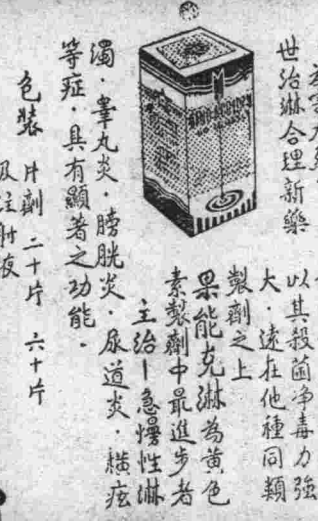 世治淋合理新藥
以其殺菌净毒力強
大·遠在他種同類
製劑之上
果能克淋為黄色
素製劑中最進步者
主治—急慢性淋
濁·睾丸炎·膀胱炎·尿道炎·橫痃
等症·具有顯著之功能·
包裝 片劑 二十片 六十片
及注射液